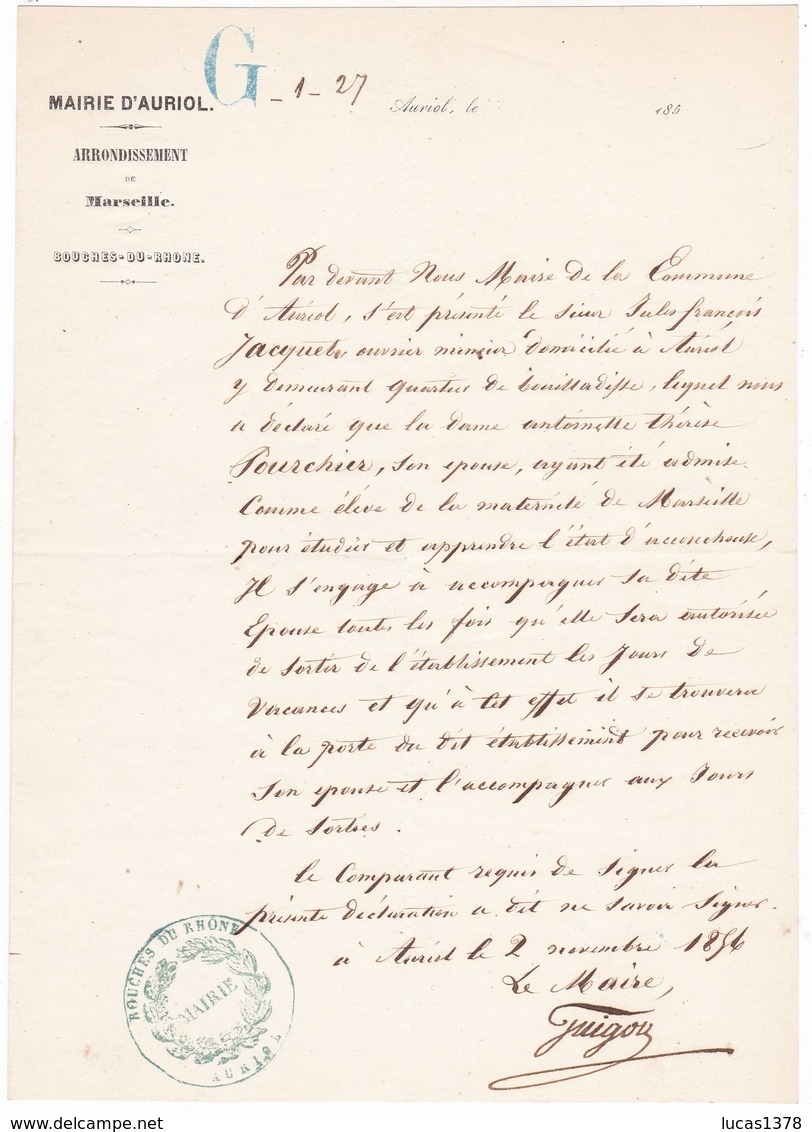 G - 1 - 27
MAIRIE D'AURIOL.
Auriol, le 185
ARRONDISSEMENT
DE
Marseille.
BOUCHES-DU-RHONE.
Par devant Nous Maire de la Commune
d'Auriol, s'est présenté le sieur Jules françois
Jacquet, ouvrier mineur domicilié à Auriol
y demeurant quartier de bouilladisse, lequel nous
a déclaré que la dame antoinette thérèse
Pourchier, son epouse, ayant été admise
Comme élève de la maternité de Marseille
pour étudier et apprendre l'état d'accoucheuse,
Il s'engage à accompagner sa dite
Epouse toutes les fois qu'elle sera autorisée
de sortir de l'établissement les Jours de
Vacances et qu'à cet effet il se trouvera
à la porte du dit établissement pour recevoir
Son epouse et l'accompagner aux Jours
de Sorties.
le Comparant requis de Signer la
présente déclaration a dit ne savoir signer.
à Auriol le 2 novembre 1856
Le Maire,
Guigou
BOUCHES DU RHÔNE
MAIRIE
AURIOL
lucas1378